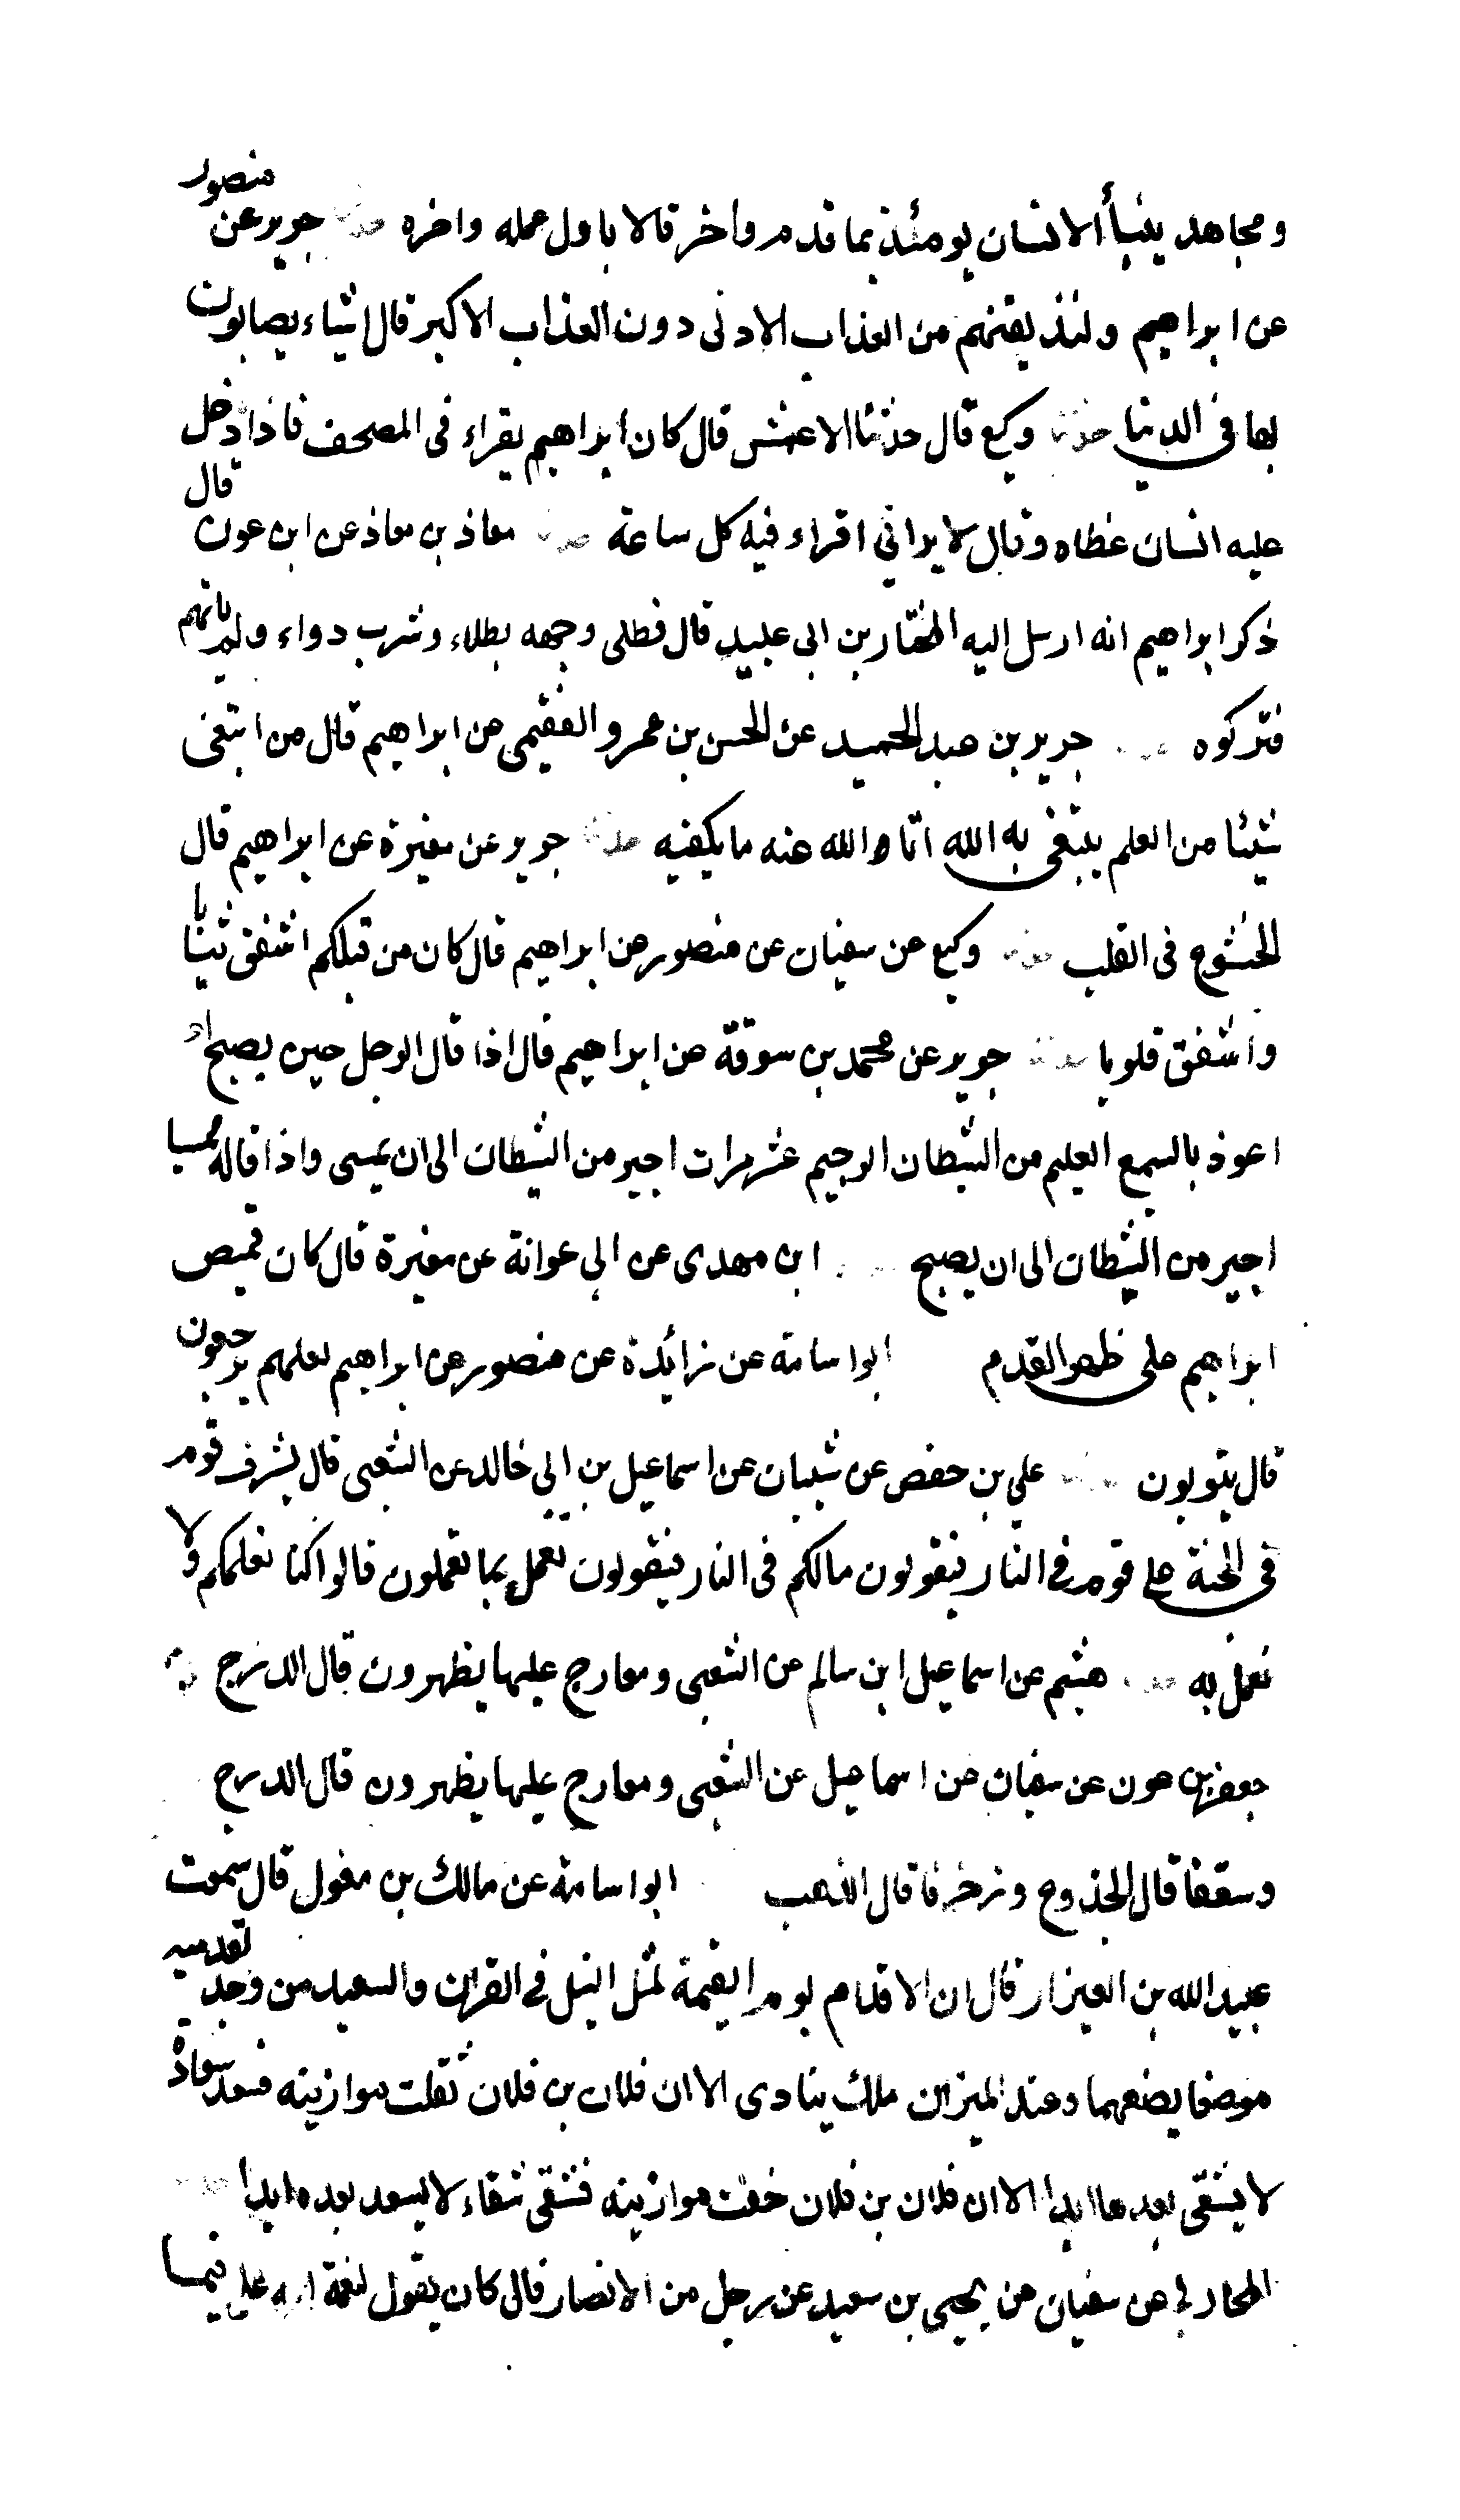 ومجاهد ينبأ الانسان يومئذ بما قدم واخر قالا باول عمله واخره حدثنا جرير عن منصور
عن ابراهيم ولنذيقنهم من العذاب الادنى دون العذاب الاكبر قال اشياء يصابون
بها في الدنيا حدثنا وكيع قال حدثنا الاعمش قال كان ابراهيم يقراء في المصحف فاذا دخل
عليه انسان غطاه وقال لا يراني اقراء فيه كل ساعة حدثنا معاذ بن معاذ عن ابن عون قال
ذكر ابراهيم انه ارسل اليه المختار بن ابي عبيد قال فطلى وجهه بطلاء وشرب دواء ولم ياتهم
فتركوه جرير بن عبد الحميد عن الحسن بن عمرو الفقيمي عن ابراهيم قال من ابتغى
شيئا من العلم يبتغى به الله اتاه الله منه ما يكفيه حدثنا جرير عن مغيرة عن ابراهيم قال
الخشوع في القلب حدثنا وكيع عن سفيان عن منصور عن ابراهيم قال كان من قبلكم اشفق ثيابا
واشفق قلوبا حدثنا جرير عن محمد بن سوقة عن ابراهيم قال اذا قال الرجل حين يصبح
اعوذ بالسميع العليم من الشيطان الرجيم عشر مرات اجير من الشيطان الى ان يمسى واذا قاله ممسيا
اجير من الشيطان الى ان يصبح ابن مهدى عن ابي عوانة عن مغيرة قال كان قميص
ابراهيم على ظهر القدم ابو اسامة عن زائدة عن منصور عن ابراهيم لعلهم يرجعون
قال يتوبون علي بن حفص عن شيبان عن اسماعيل بن ابي خالد عن الشعبى قال يشرف قوم
في الجنة على قوم في النار فيقولون مالكم فى النار فيقولون نعمل بما تعملون قالوا كنا نعلمكم ولا
نعمل به هشيم عن اسماعيل ابن سالم عن الشعبى ومعارج عليها يظهرون قال الدرج
جعفر بن عون عن سفيان عن اسماعيل عن الشعبى ومعارج عليها يظهرون قال الدرج
وسقفا قال الجذوع وزخرفا قال الذهب ابو اسامة عن مالك بن مغول قال سمعت
عبيد الله بن العيزار قال ان الاقدام يوم القيمة لمثل النبل في القرن والسعيد من وجد لقدميه
موضعا يضعهما وعند الميزان ملك ينادى الا ان فلان بن فلان ثقلت موازينه فسعد سعادة
لا يشقى بعدها ابدا الا ان فلان بن فلان خفت موازينه فشقى شقاء لا يسعد بعده ابدا
المحاربي عن سفيان عن يحيى بن سعيد عن رجل من الانصار قال كان يقول لنعمة الله علي فيما